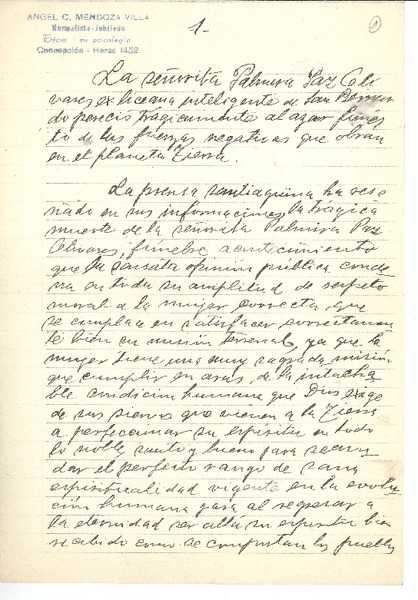 ANGEL C. MENDOZA VILLA
Normalista-Jubilado
Etica: su psicología
Concepción - Heras 1452
1-
1
La señorita Palmira Paz Oli
vares ex liceana inteligente de San Bernar
do pereció trágicamente al azar funes
to de las fuerzas negativas que obran
en el planeta Tierra.
La prensa santiaguina ha rese
ñado en sus informaciones la trágica
muerte de la señorita Palmira Paz
Olivares, fúnebre acontecimiento
que la sensata opinión pública conde
na en toda su amplitud de respeto
moral a la mujer correcta, que
se emplea en satisfacer correctamen
te bien su misión terrenal, ya que la
mujer tiene una muy sagrada misión
que cumplir en aras de la intacha
ble condición humana que Dios exige
de sus siervos que vienen a la Tierra
a perfeccionar su espíritu en todo
lo noble, santo y bueno para secun
dar el perfecto rango de sana
espiritualidad vigente en la evolu
ción humana para al regresar a
la eternidad ser allá su espíritu bien
recibido como se comportan los pueblos